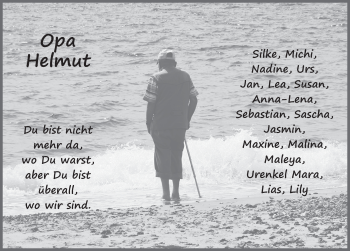 Opa
Helmut
Du bist nicht
mehr da,
wo Du warst,
aber Du bist
überall,
wo wir sind.
Silke, Michi,
Nadine, Urs,
Jan, Lea, Susan,
Anna-Lena,
Sebastian, Sascha,
Jasmin,
Maxine, Malina,
Maleya,
Urenkel Mara,
Lias, Lily